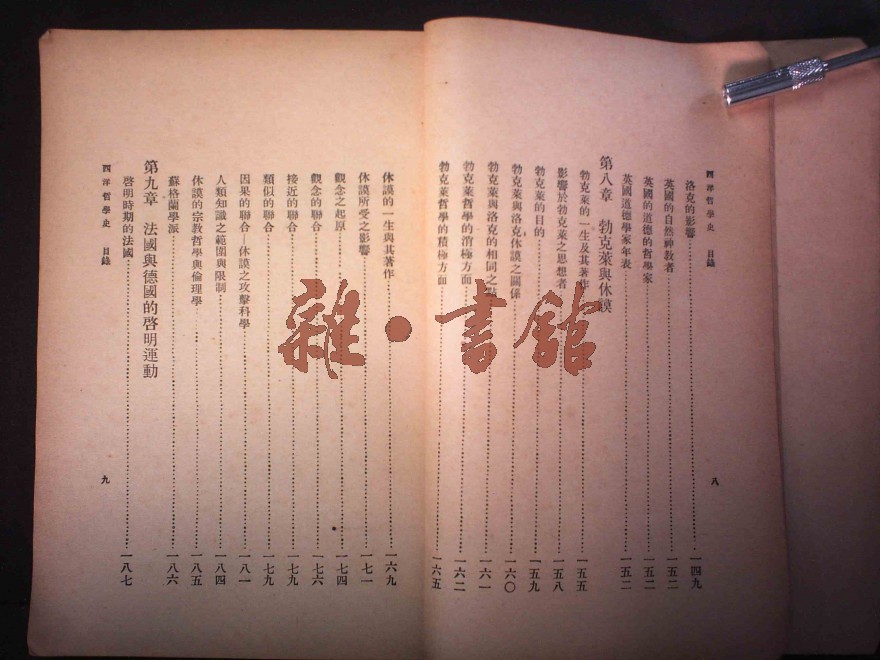 西洋哲學史 目錄
洛克的影響……一四九
英國的自然神教者……一五二
英國的道德的哲學家……一五二
英國道德學家年表……一五二
第八章 勃克萊與休謨
勃克萊的一生及其著作……一五五
影響於勃克萊之思想者……一五八
勃克萊的目的……一五九
勃克萊與洛克休謨之關係……一六〇
勃克萊與洛克的相同之點……一六一
勃克萊哲學的消極方面……一六二
勃克萊哲學的積極方面……一六五
八
休謨的一生與其著作……一六九
休謨所受之影響……一七一
觀念之起原……一七四
觀念的聯合……一七六
接近的聯合……一七九
類似的聯合……一七九
因果的聯合—休謨之攻擊科學……一八一
人類知識之範圍與限制……一八四
休謨的宗教哲學與倫理學……一八五
蘇格蘭學派……一八六
第九章 法國與德國的啓明運動
啓明時期的法國……一八七
西洋哲學史 目錄
九
雜·書館